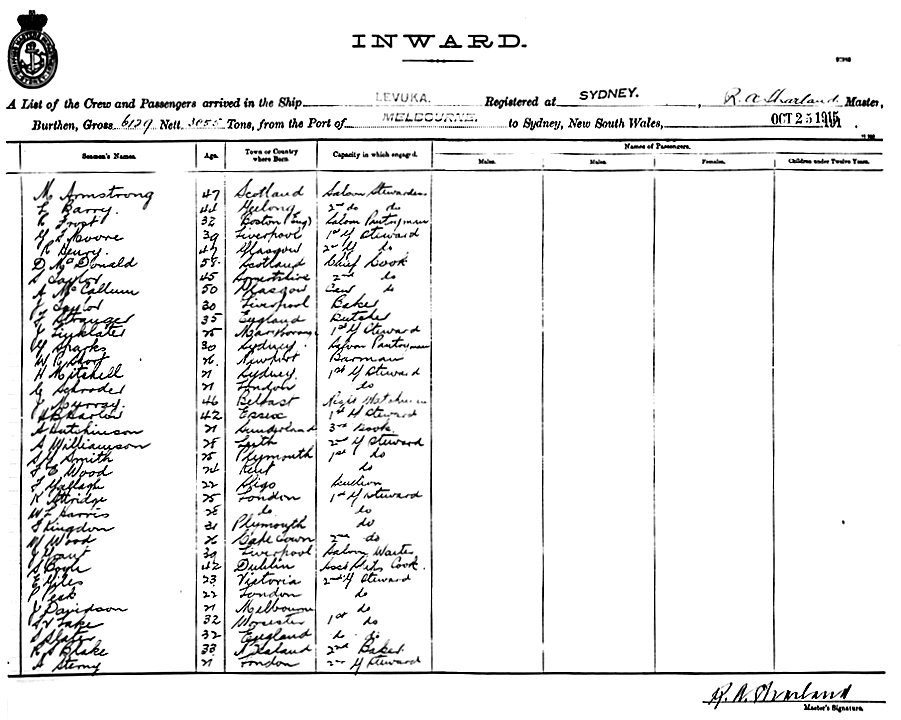 INWARD.
A List of the Crew and Passengers arrived in the Ship LEVUKA. Registered at SYDNEY. , R. A. Sharland Master,
Burthen, Gross 6129 Nett 3055 Tons, from the Port of MELBOURNE. to Sydney, New South Wales, OCT 25 1915
Names of Passengers.
Seamen's Names. Age. Town or Country where Born. Capacity in which engaged. Males. Males. Females. Children under Twelve Years.
M Armstrong 47 Scotland Saloon Stewardess
Barry. 44 Geelong 2nd do do
Frost 32 Boston (Eng) Saloon Pantryman
Moore 39 Liverpool 1st Steward
R Henry. 47 Glasgow 2nd do.
D McDonald 58 Scotland Chief Cook
S Taylor 45 2nd do
A McCallum 50 Glasgow do
Taylor 30 Liverpool Baker
Stranger 35 England Butcher
Linklater 25 1st Steward
Sparks 30 Sydney. Saloon Pantryman
W Short 26 Newport Barman
H Mitchell 21 Sydney 1st Steward
G Schroder 21 London do
J Murray. 46 Belfast Night Watchman
Barlow 42 Essex 1st Steward
A Hutchinson 21 Sunderland 3rd Cook.
A Williamson 28 Leith 2nd Steward
Smith 25 Plymouth 1st do
F E Wood 24 Kent do
Gallagh 22
K Attridge 25 London 1st Steward
W L Harris 28 do do
S Kingdon 31 Plymouth do
W Wood 26 Cape Town 2nd do
J Grant 39 Liverpool Saloon Waiter
S Boyle 42 Dublin Cook.
E Giles 23 Victoria 2nd Steward
P Peek 22 London do
J Davidson 21 Melbourne do
Lake 32 Worcester 1st do
S Slater 32 England do do
R S Blake 33 N Zealand 2nd Baker
A Stemy 21 London 2nd Steward
R. A. Sharland
Master's Signature.